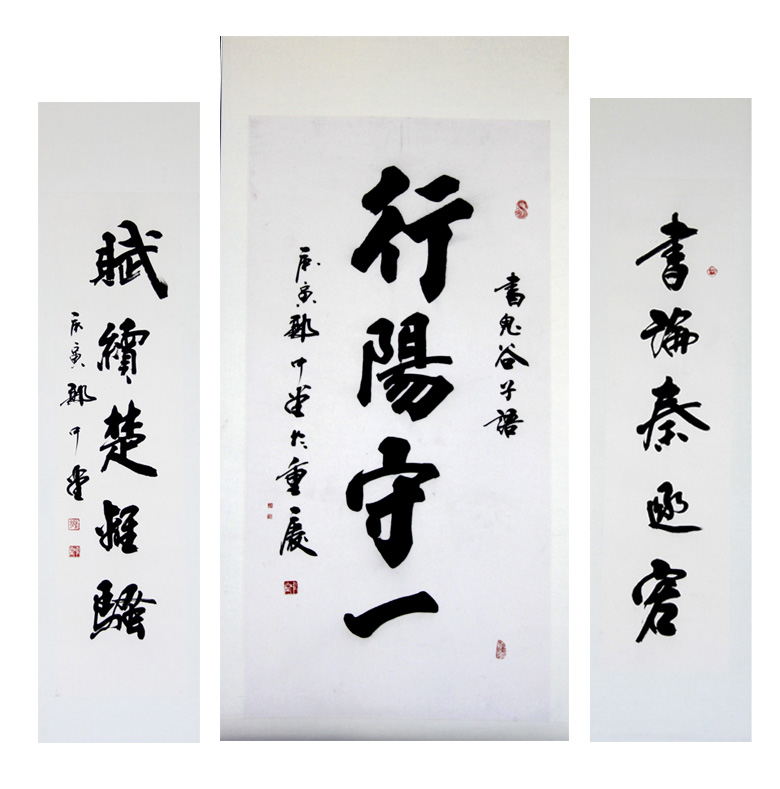 書論秦逐客
書鬼谷子語
行陽守一
庚寅鄭中於重慶
賦續楚離騷
庚寅鄭中